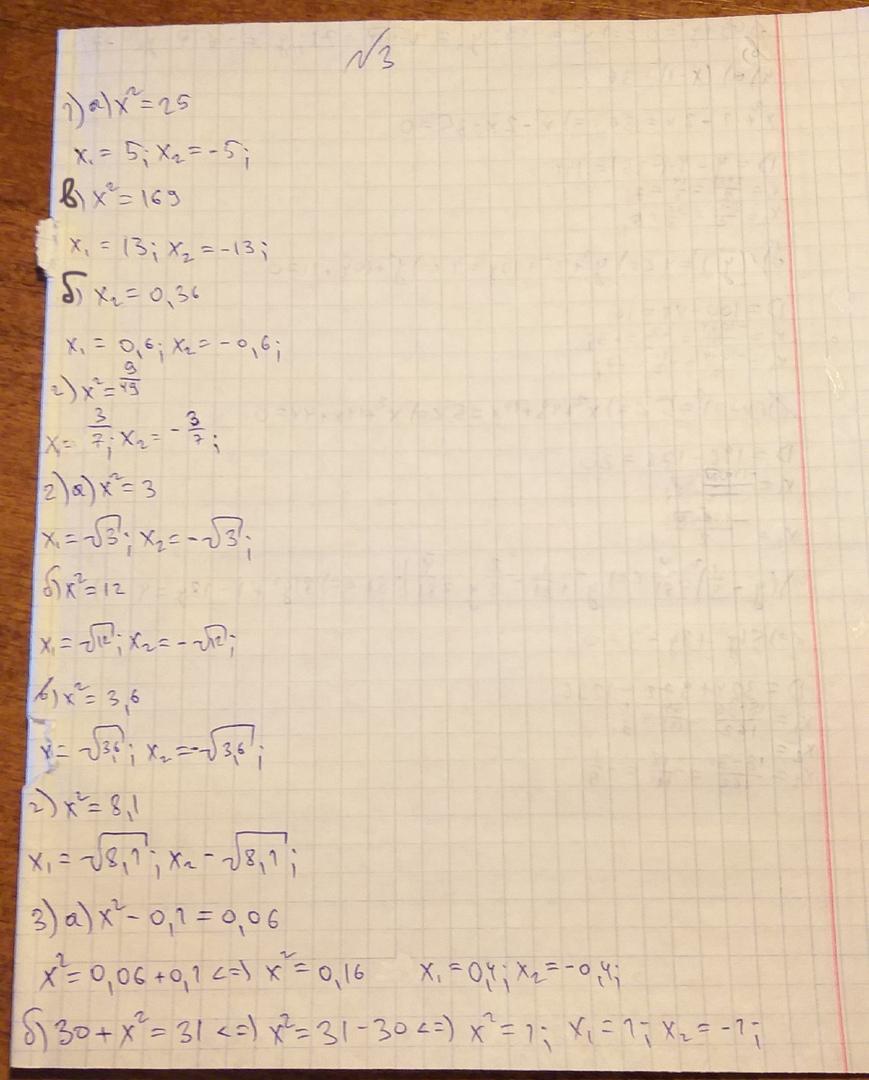 №3
1) а) x² = 25
x₁ = 5; x₂ = -5;
в) x² = 169
x₁ = 13; x₂ = -13;
б) x₂ = 0,36
x₁ = 0,6; x₂ = -0,6;
г) x² = 9/49
x₁ = 3/7; x₂ = -3/7;
2) а) x² = 3
x₁ = √3; x₂ = -√3;
б) x² = 12
x₁ = √12; x₂ = -√12;
в) x² = 3,6
x = √3,6; x₂ = -√3,6;
г) x² = 8,1
x₁ = √8,1; x₂ - √8,1;
3) а) x² - 0,1 = 0,06
x² = 0,06 + 0,1 <=> x² = 0,16 x₁ = 0,4; x₂ = -0,4;
б) 30 + x² = 31 <=> x² = 31 - 30 <=> x² = 1; x₁ = 1; x₂ = -1;